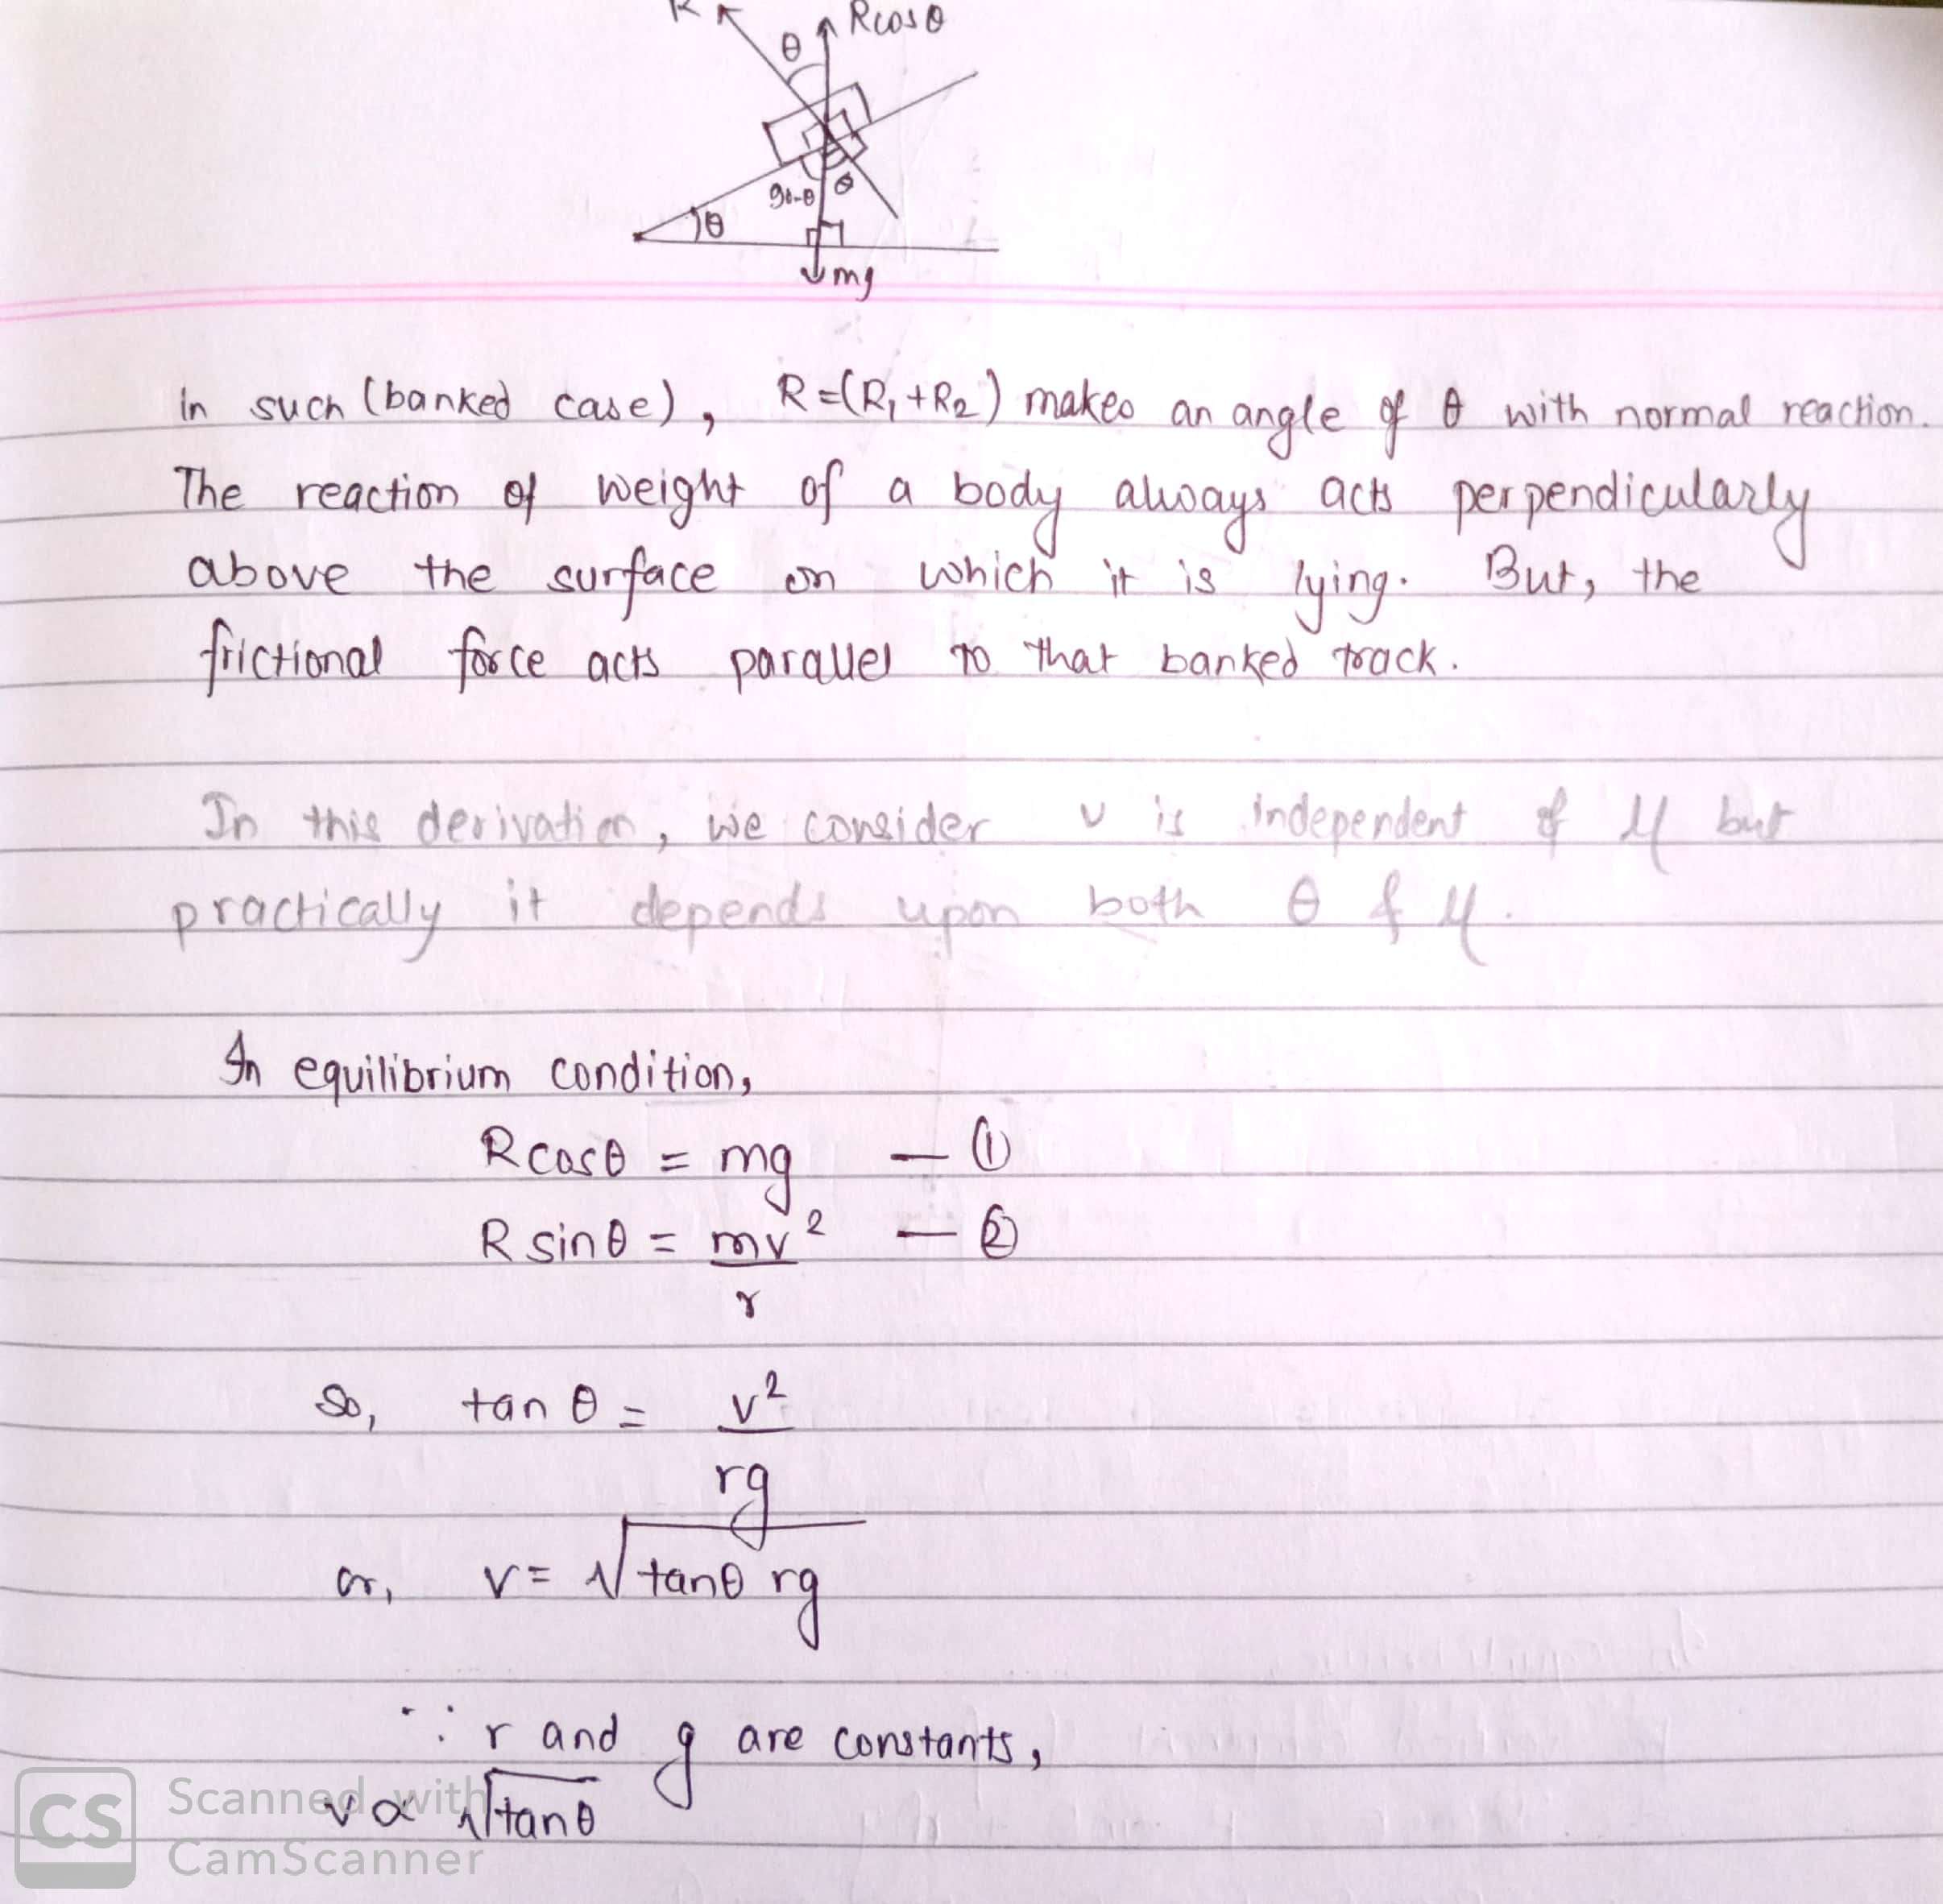 R Rcosθ
θ
90-θ θ
θ
mg
In such (banked case), R=(R₁+R₂) makes an angle of θ with normal reaction.
The reaction of weight of a body always acts perpendicularly
above the surface on which it is lying. But, the
frictional force acts parallel to that banked track.
In this derivation, we consider v is independent of μ but
practically it depends upon both θ & μ.
In equilibrium condition,
Rcosθ = mg — ①
R sinθ = mv² — ②
r
So, tan θ = v²
rg
or, v = √tanθ rg
∵ r and g are constants,
v ∝ √tanθ
CS Scanned with
CamScanner